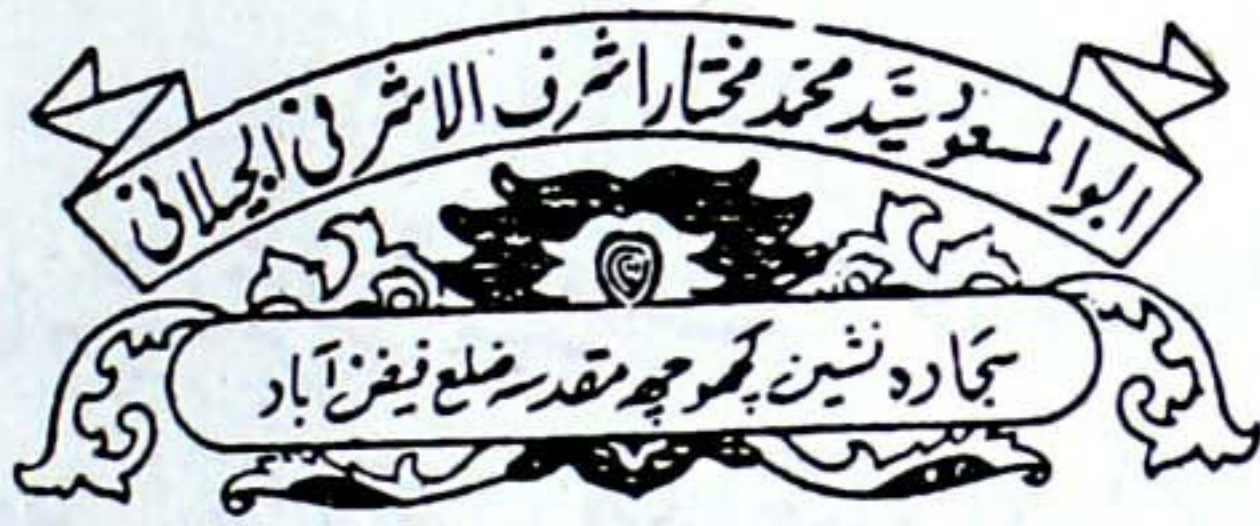 ابوالمسعود سیّد محمّد مختار اشرف الاشرفی الجیلانی
سجّادہ نشین کچھوچھہ مقدسہ ضلع فیض آباد